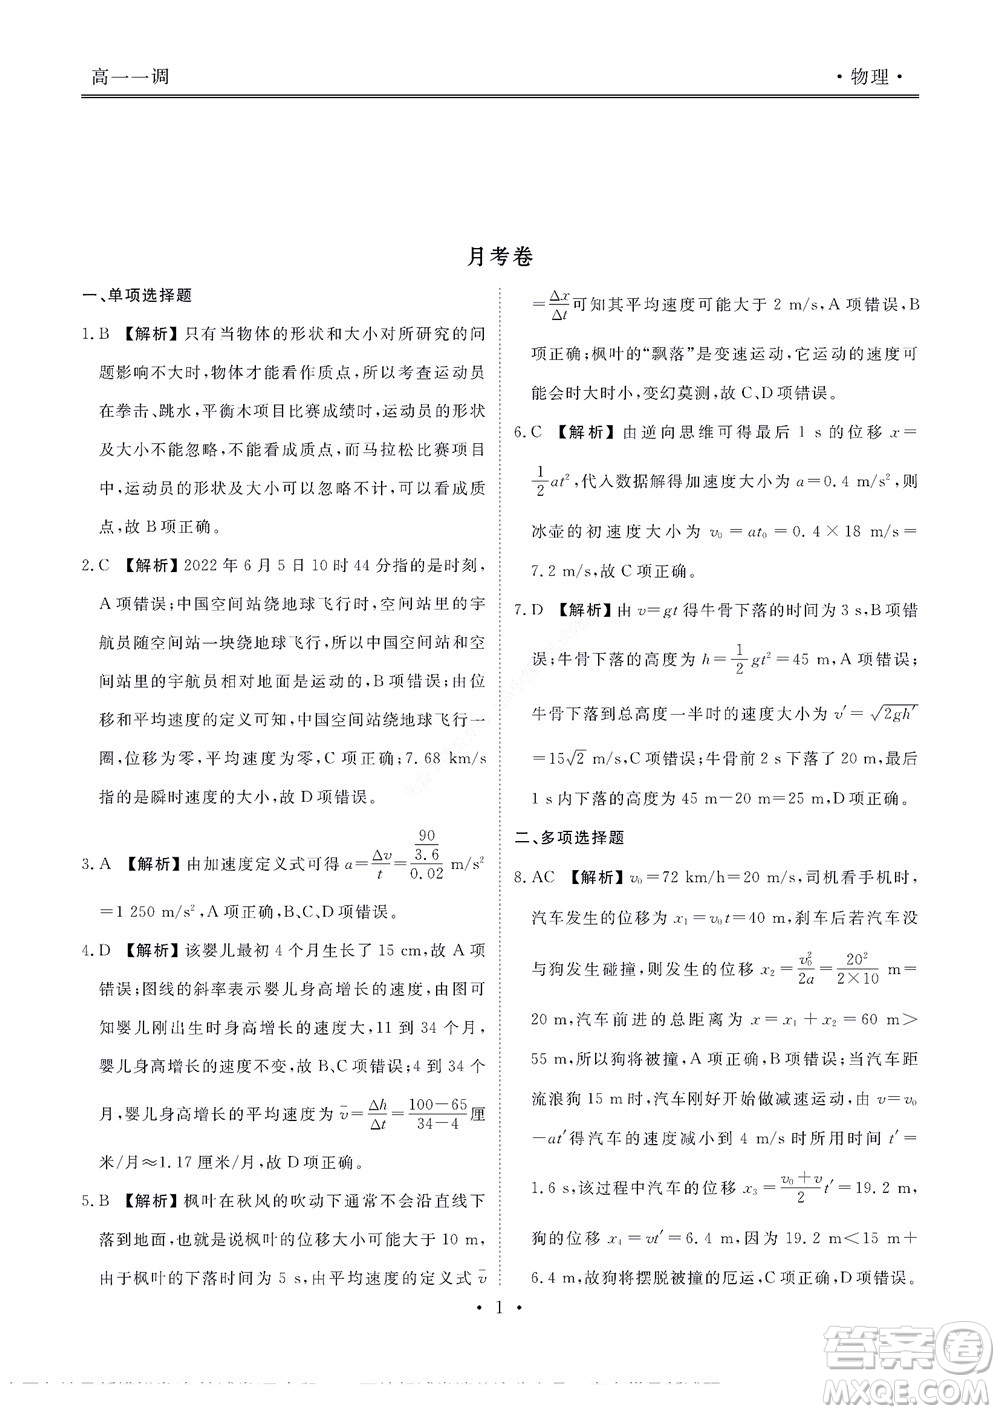 高一一调
·物理·
月考卷
一、单项选择题
1.B 【解析】只有当物体的形状和大小对所研究的问
题影响不大时,物体才能看作质点,所以考查运动员
在拳击、跳水,平衡木项目比赛成绩时,运动员的形状
及大小不能忽略,不能看成质点,而马拉松比赛项目
中,运动员的形状及大小可以忽略不计,可以看成质
点,故 B 项正确。
2.C 【解析】2022 年 6 月 5 日 10 时 44 分指的是时刻,
A 项错误;中国空间站绕地球飞行时,空间站里的宇
航员随空间站一块绕地球飞行,所以中国空间站和空
间站里的宇航员相对地面是运动的,B 项错误;由位
移和平均速度的定义可知,中国空间站绕地球飞行一
圈,位移为零,平均速度为零,C 项正确;7.68 km/s
指的是瞬时速度的大小,故 D 项错误。
3.A 【解析】由加速度定义式可得 a=Δv/t=(90/3.6)/0.02 m/s²
=1 250 m/s²,A 项正确,B、C、D 项错误。
4.D 【解析】该婴儿最初 4 个月生长了 15 cm,故 A 项
错误;图线的斜率表示婴儿身高增长的速度,由图可
知婴儿刚出生时身高增长的速度大,11 到 34 个月,
婴儿身高增长的速度不变,故 B、C 项错误;4 到 34 个
月,婴儿身高增长的平均速度为 v̄=Δh/Δt=(100-65)/(34-4)厘
米/月≈1.17 厘米/月,故 D 项正确。
5.B 【解析】枫叶在秋风的吹动下通常不会沿直线下
落到地面,也就是说枫叶的位移大小可能大于 10 m,
由于枫叶的下落时间为 5 s,由平均速度的定义式 v̄
=Δx/Δt可知其平均速度可能大于 2 m/s,A 项错误,B
项正确;枫叶的“飘落”是变速运动,它运动的速度可
能会时大时小,变幻莫测,故 C、D 项错误。
6.C 【解析】由逆向思维可得最后 1 s 的位移 x=
1/2 at²,代入数据解得加速度大小为 a=0.4 m/s²,则
冰壶的初速度大小为 v₀=at₀=0.4×18 m/s=
7.2 m/s,故 C 项正确。
7.D 【解析】由 v=gt 得牛骨下落的时间为 3 s,B 项错
误;牛骨下落的高度为 h=1/2 gt²=45 m,A 项错误;
牛骨下落到总高度一半时的速度大小为 v′=√(2gh′)
=15√2 m/s,C 项错误;牛骨前 2 s 下落了 20 m,最后
1 s 内下落的高度为 45 m-20 m=25 m,D 项正确。
二、多项选择题
8.AC 【解析】v₀=72 km/h=20 m/s,司机看手机时,
汽车发生的位移为 x₁=v₀t=40 m,刹车后若汽车没
与狗发生碰撞,则发生的位移 x₂=v₀²/2a=20²/(2×10) m=
20 m,汽车前进的总距离为 x=x₁+x₂=60 m>
55 m,所以狗将被撞,A 项正确,B 项错误;当汽车距
流浪狗 15 m 时,汽车刚好开始做减速运动,由 v=v₀
-at′得汽车的速度减小到 4 m/s 时所用时间 t′=
1.6 s,该过程中汽车的位移 x₃=(v₀+v)/2 t′=19.2 m,
狗的位移 x₄=vt′=6.4 m,因为 19.2 m<15 m+
6.4 m,故狗将摆脱被撞的厄运,C 项正确,D 项错误。
· 1 ·
答案圈
MXQE.COM